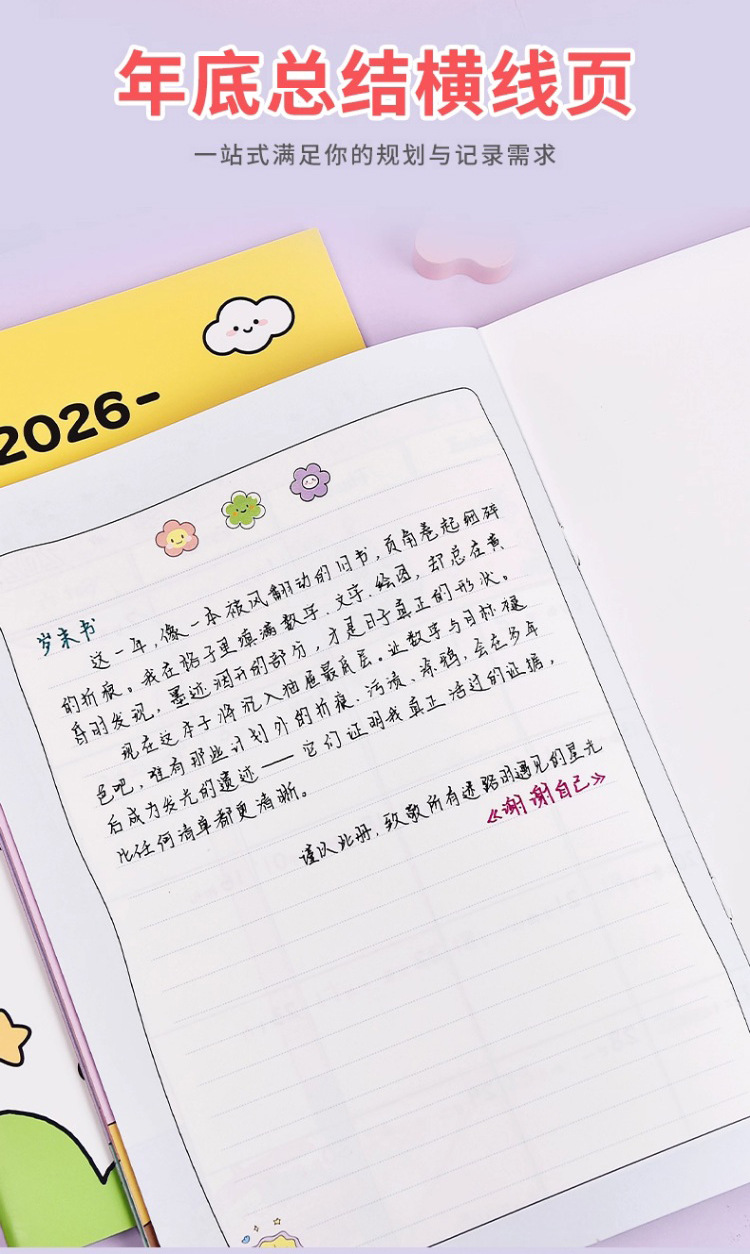 年底总结横线页
一站式满足你的规划与记录需求
2026-
岁末书
这一年，像一本被风翻动的旧书，页角卷起细碎
的折痕。我在格子里填满数字、文字、绘图，却总在黄
昏时发现，墨迹洇开的部分，才是日子真正的形状。
现在这本子将沉入抽屉最底层。让数字与目标褪
色吧，唯有那些计划外的折痕、污渍、涂鸦，会在多年
后成为发光的遗迹——它们证明我真正活过的证据，
比任何清单都更清晰。
谨以此册，致敬所有迷路时遇见的星光
《谢谢自己》